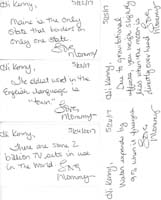 5/22/17
Hi Kenny,
Maine is the only
State that borders
only one state.
Love,
Mommy
5/23/17
Hi Kenny,
The oldest word in the
English language is
"town".
Love,
Mommy
5/24/2017
Hi Kenny,
There are some 2
billion TV sets in use
in the World.
Love,
Mommy
Hi Kenny,
Due to gravitational
effects, you weigh slightly
less when the moon is
directly over head.
Love,
Mommy
Hi Kenny,
Water expands by
9% when it freezes.
Love,
Mommy